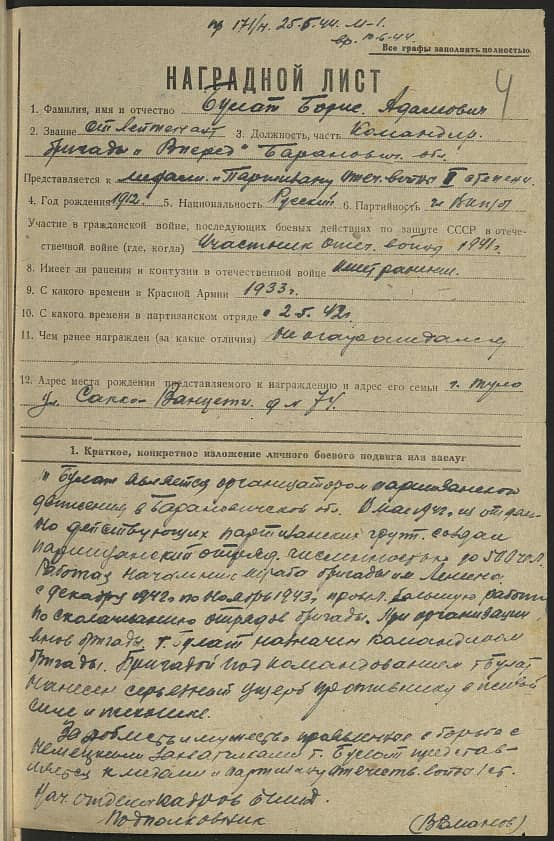 пр 171/н. 25.5.44. М-1.
вр. 10.6.44
Все графы заполнять полностью.
4
НАГРАДНОЙ ЛИСТ
1. Фамилия, имя и отчество Булат Борис Адамович
2. Звание ст лейтенант 3. Должность, часть Командир
бригады „Вперед" Баранович. обл.
Представляется к медали „Партизану Отеч. войны II степени.
4. Год рождения 1912. 5. Национальность Русский 6. Партийность
Участие в гражданской войне, последующих боевых действиях по защите СССР в отече-
ственной войне (где, когда) Участник отеч. войны 1941 г.
8. Имеет ли ранения и контузии в отечественной войне
9. С какого времени в Красной Армии 1933 г.
10. С какого времени в партизанском отряде с 2.5.42 г.
11. Чем ранее награжден (за какие отличия) не награждался
12. Адрес места рождения представляемого к награждению и адрес его семьи г. Тула
ул. Сакко-Ванцетти. д № 74.
1. Краткое, конкретное изложение личного боевого подвига или заслуг
Булат является организатором партизанского
движения в Барановичской обл. В мае 1942 г. из отдель-
но действующих партизанских групп. создал
партизанский отряд. численностью до 500 чел.
Работая начальник штаба бригады им Ленина.
с декабря 1942 г. по ноябрь 1943 г. провел большую работу
по сколачиванию отрядов бригады. При организации
внов бригады т. Булат назначен командиром
бригады. Бригадой под командованием т Булат
нанесен серьезный ущерб противнику в живой
силе и технике.
За доблесть и мужество проявленное в борьбе с
немецкими захватчиками т. Булат представ-
ляется к медали „партизану отечеств. войны 1 ст.
Нач. отдела кадров БШПД
Подполковник (Романов)